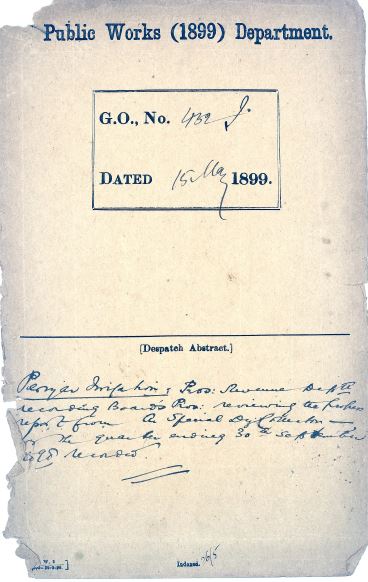 Public Works (1899) Department.
G.O., No. 432 I.
DATED 15 May 1899.
[Despatch Abstract.]
Periyar Irrigation; Pros: Revenue Deptt
recording Board's Pros: reviewing the
report from A Special Dy Collector
for the quarter ending 30th September
recorded
W. 2
Indexed.